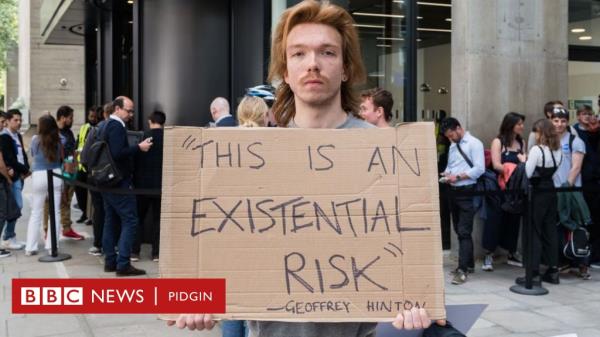 "THIS IS AN
EXISTENTIAL
RISK"
—GEOFFREY HINTON
BBC NEWS | PIDGIN